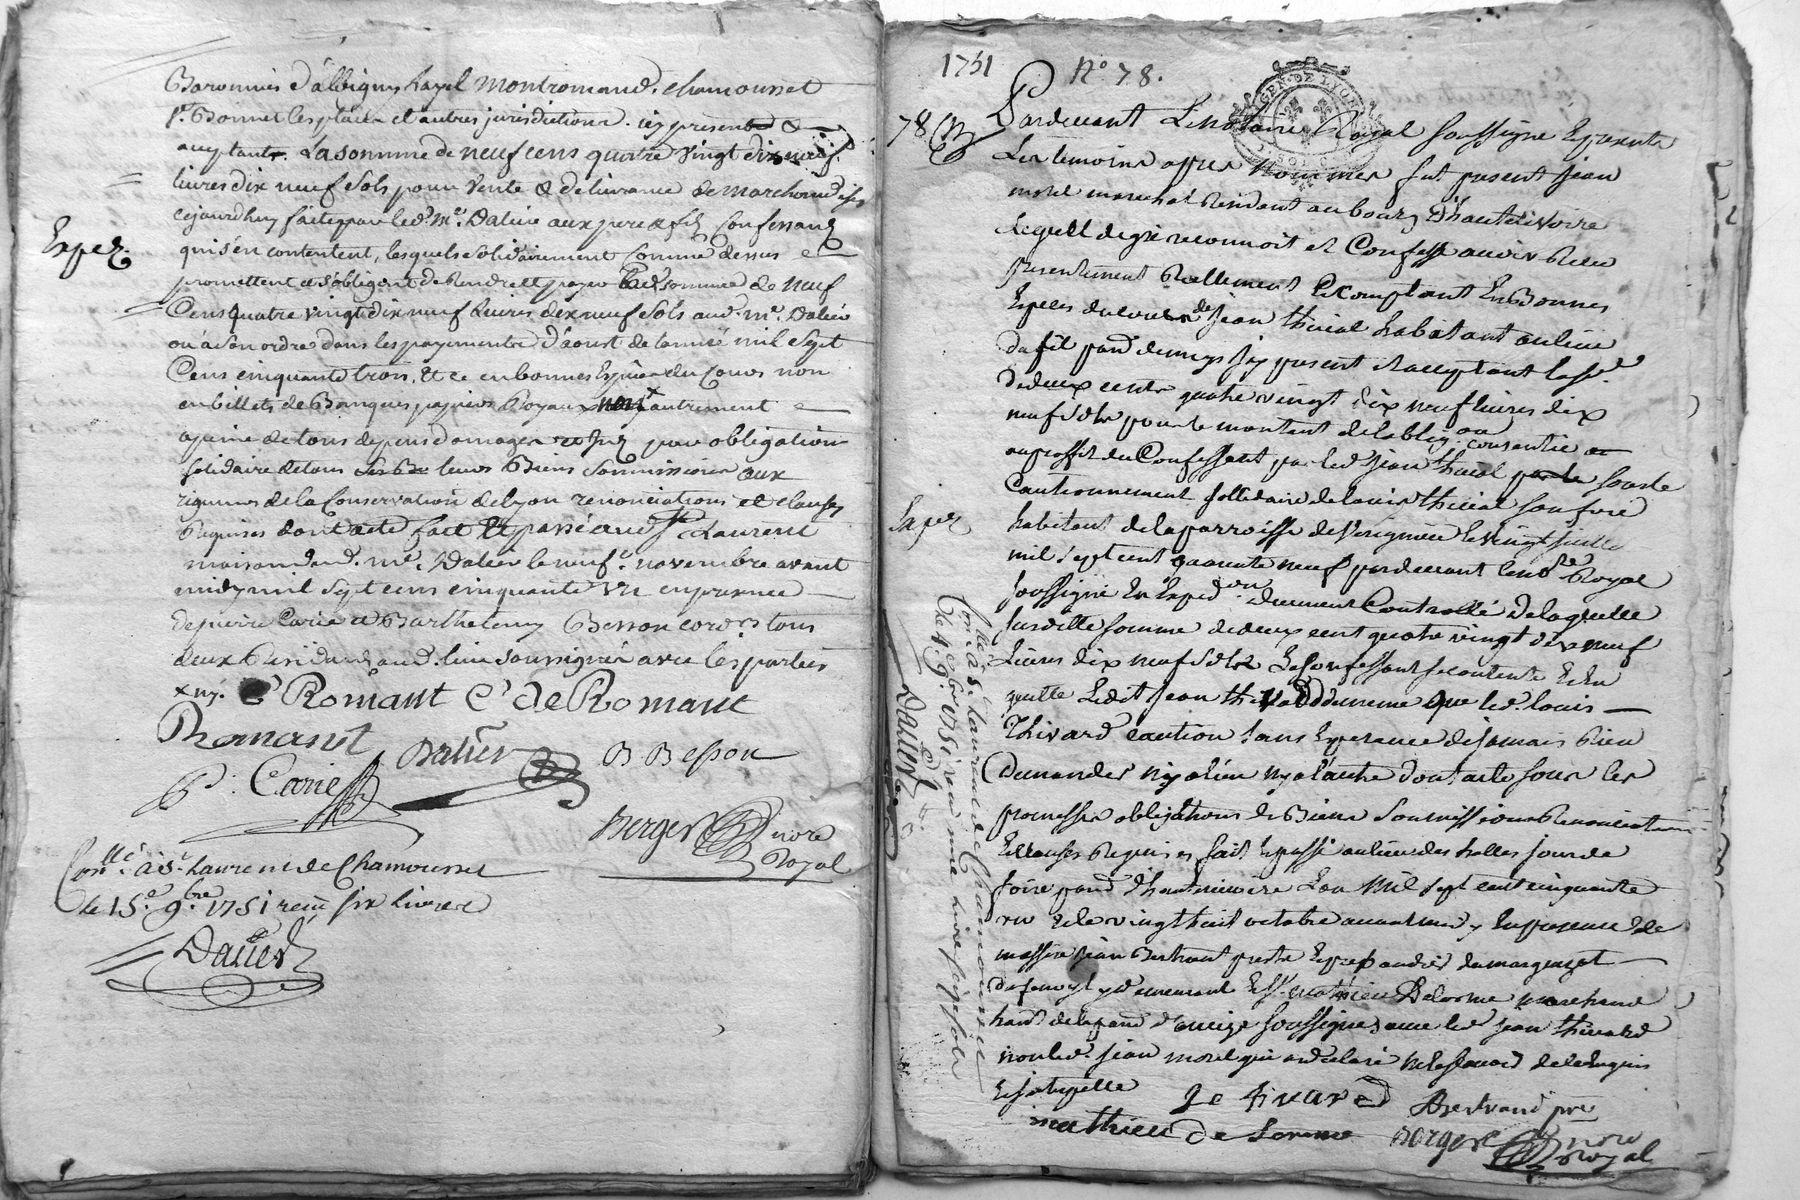 Baronnies d'albigny hazel montromand, chamousset
st. Bonnet les places et autres jurisdictions, icy present &
acceptant. La somme de neuf cens quatre vingt dix neuf
livres dix neuf sols pour vente & delivrance de marchandises
cejourdhuy faite par led. me. Dalier aux pere & fils confessants
qui s'en contentent, lesquels solidairement comme dessus
promettent et s'obligent de rendre et payer lad. somme de neuf
Cens quatre vingt dix neuf Livres dix neuf sols aud. me. Dalier
ou à son ordre dans les payements d'aoust de l'année mil sept
Cens cinquante trois, et ce en bonnes Espèces du Cours non
en billets de Banques papiers Royaux autrement
a peine de tous depens domages pour obligation
solidaire de tous leurs Biens soumissions aux
rigueurs de la Conservation de lyon renonciations et clauses
Requises dont acte fait et passé aud. st. Laurent
maison dud. me. Dalier le neuf. novembre avant
midy mil sept cens cinquante un en presence
de pierre Carie et Barthelemy Besson tous
deux Residants aud. lieu soussignés avec les parties
Exper.
C Romant C de Romant
Romant Dalier B Besson
P. Carie
Berger nore
Royal
Conllé. à st. Laurent de Chamousset
le 15e. 9bre. 1751 reçu six livres
Dalier
1751 No 78.
GEN. DE LYON
78
Pardevant Le notaire Royal soussigné Et presents
Les temoins apres nommes fut present jean
morel marechal Residant au bourg d'hauterivoire
Lequel de gré reconnoit et Confesse avoir Reçu
presentement Réellement Et comptant En Bonnes
Especes du cours de jean thivial habitant au lieu
du fil paroisse de meys jcy present et acceptant la so.
de deux cents quatre vingt dix neuf livres dix
neuf sols pour le montant de l'oblig.on consentie
au proffit du Confessant par led. jean thivial sous le
Cautionnement sollidaire de louis thivial son frere
habitant de la parroisse de le vingt juillet
mil sept cent quarante neuf pardevant le no.re Royal
soussigné En Exped.on duement Controllé de laquelle
susditte somme de deux cent quatre vingt dix neuf
Livres dix neuf sols Le Confessant se contente Et En
quitte Ledit jean thivard de meme que led. louis
Thivard caution sans Esperance de jamais Rien
Demander ny a l'un ny a l'autre dont acte sous les
promesses obligations de Biens Soumissions Renonciations
Et clauses Requises fait Et passé au lieu des halles jour de
foire paroisse d'hauterivoire L'an mil sept cent cinquante
un Et le vingt huit octobre avant midy En presence de
messire jean Bertrand pretre
demeurant Et sr. mathieu Delorme marchand
soussignes avec led. jean thivard
non led. jean morel qui a declaré ne le scavoir de le Enquis
Et jnterpellé
Exper
Conllé à st. Laurent de Chamousset
le 9bre 1751 reçu une livre six sols
Dalier
Je tivard Bertrand ptre
mathieu de Lorme Berger nore
Royal